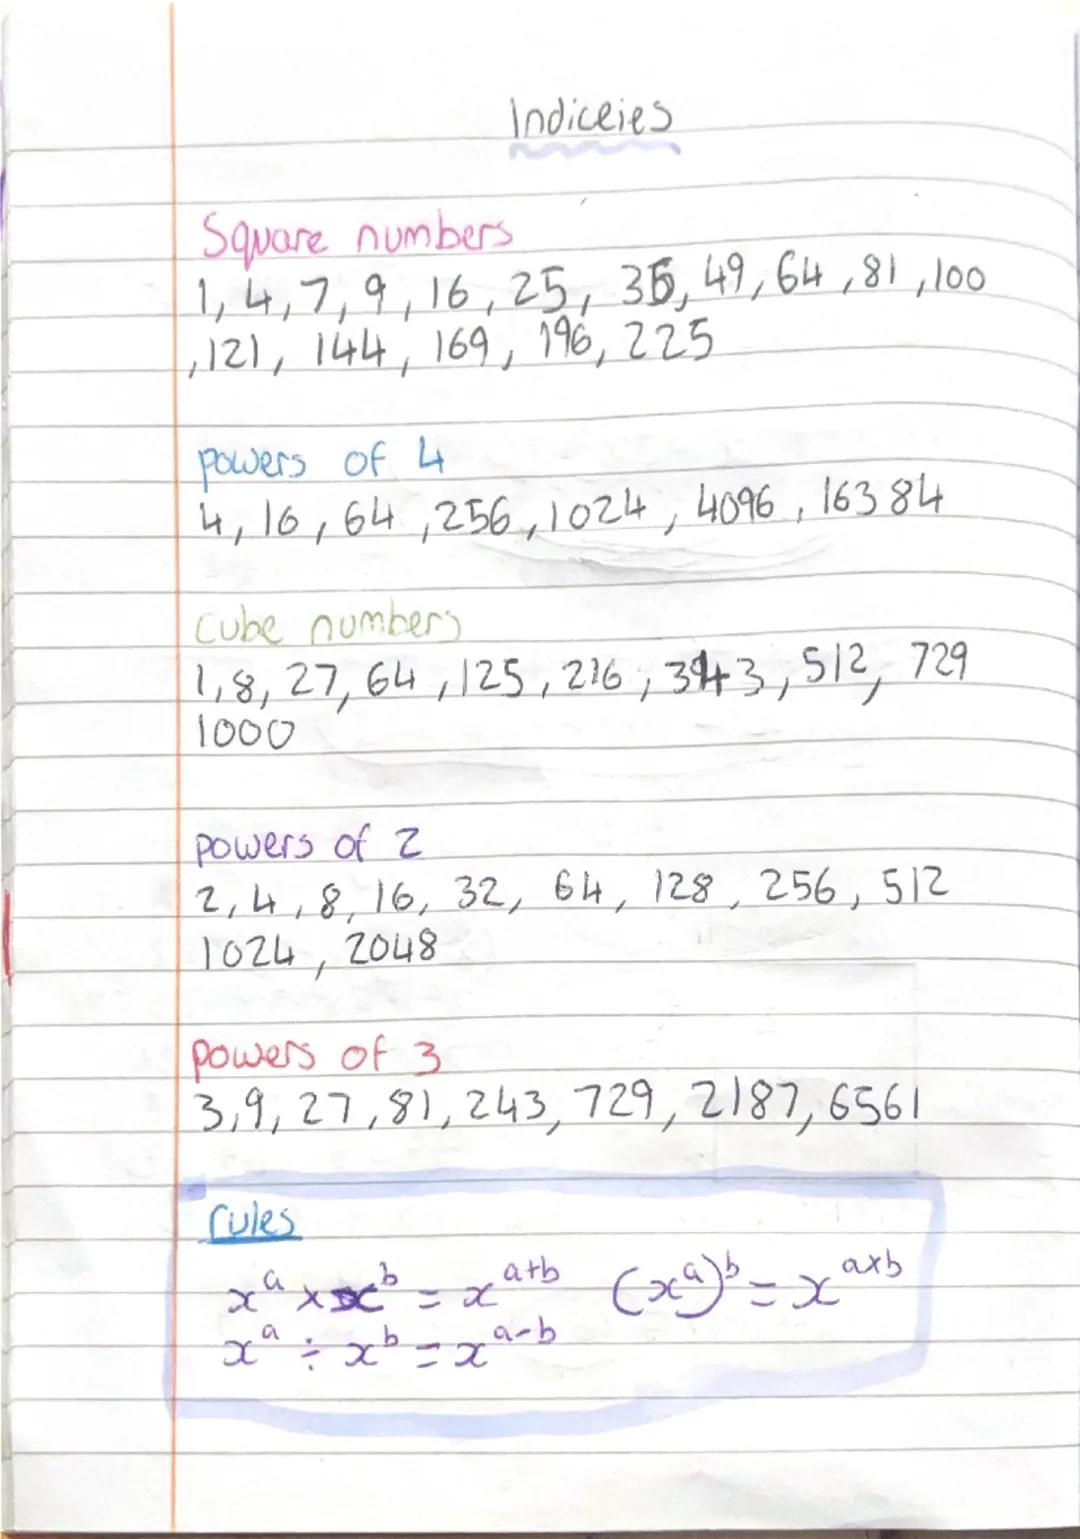 Indiceies
Square numbers
1, 4, 7, 9, 16, 25, 36, 49, 64, 81, 100
, 121, 144, 169, 196, 225
powers of 4
4, 16, 64, 256, 1024, 4096, 16384
cube numbers
1, 8, 27, 64, 125, 216, 343, 512, 729
1000
powers of 2
2, 4, 8, 16, 32, 64, 128, 256, 512
1024, 2048
powers of 3
3, 9, 27, 81, 243, 729, 2187, 6561
rules
xᵃ × xᵇ = xᵃ⁺ᵇ (xᵃ)ᵇ = xᵃˣᵇ
xᵃ ÷ xᵇ = xᵃ⁻ᵇ